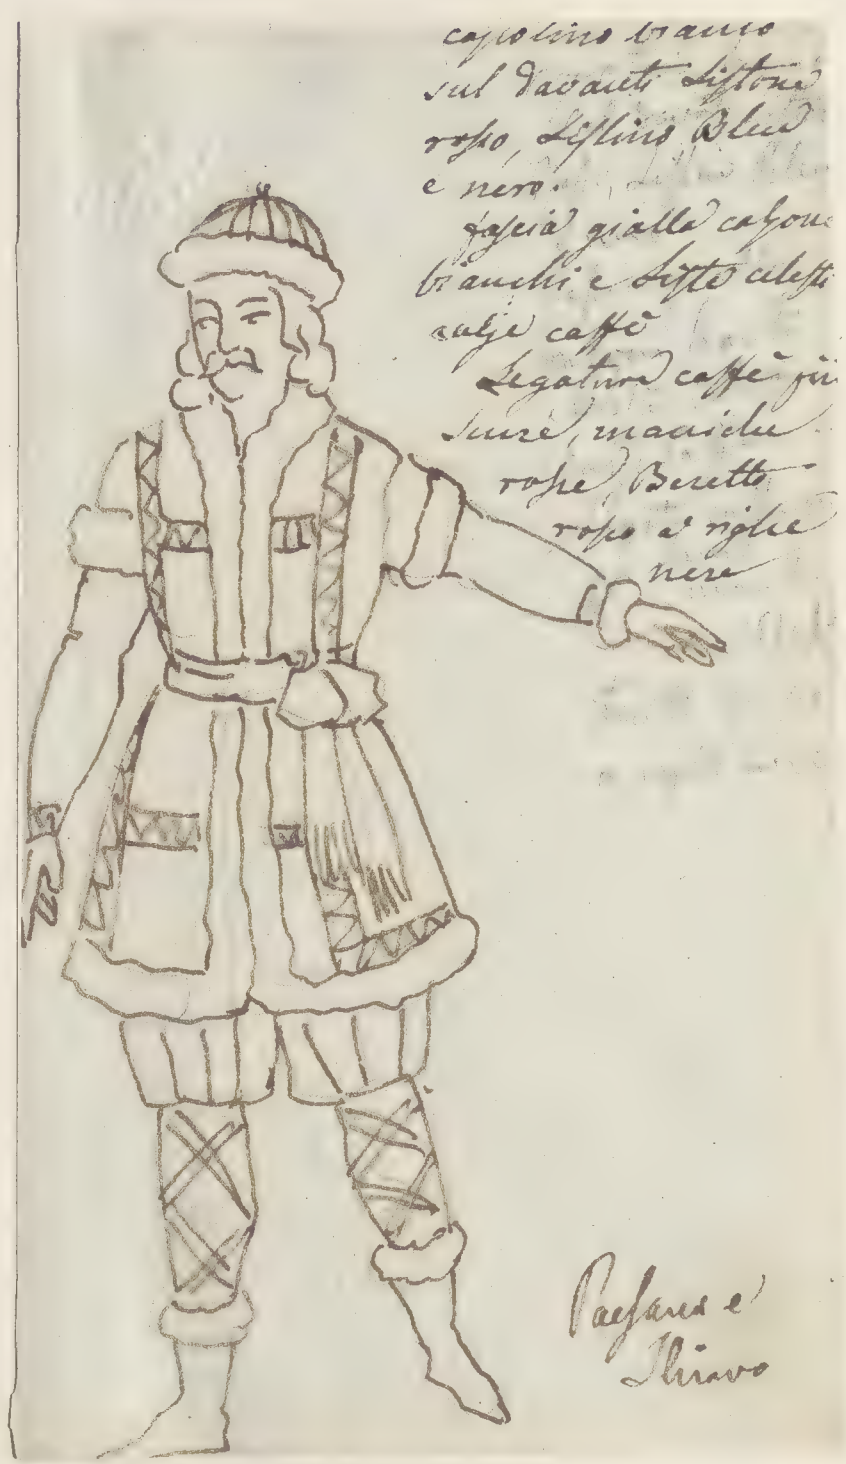 capotino bianco
sul davanti Listone
rosso, Listino Bleu
e nero.
fascia gialla calzon
bianchi e Liste celesti
calze caffè
Legature caffè più
scure, maniche
rosse, Beretto
rosso a righe
nere
Paesano e